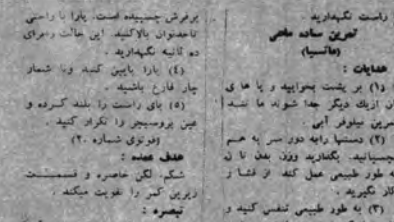 راست نگهدارید .
تمرین ساده ماهی
(ماتسیا)
هدایات :
(۱) بر پشت بخوابید و پا های
تان ازیک دیگر جدا شوند ما نند
تمرین نیلوفر آبی .
(۲) دستها رابه دور سر به هم
بچسپانید . بگذارید وزن بدن تا ن
به طور طبیعی عمل کند از فشا ر
کار نگیرید .
(۳) به طور طبیعی تنفس کنید و
برفرش چسپیده است. پارا تا راحتی
تاحدتوان بالاکنید. این حالت رابرای
ده ثانیه نگهدارید .
(٤) پارا پایین کنید وتا شمار
چار فارغ باشید .
(٥) پای راست را بلند کرده و
عین پروسیجر را تکرار کنید .
(فوتوی شماره ۲۰)
هدف عمده :
شکم. لگن خاصره و قسمت
زیرین کمر را تقویت میکند .
تبصره :